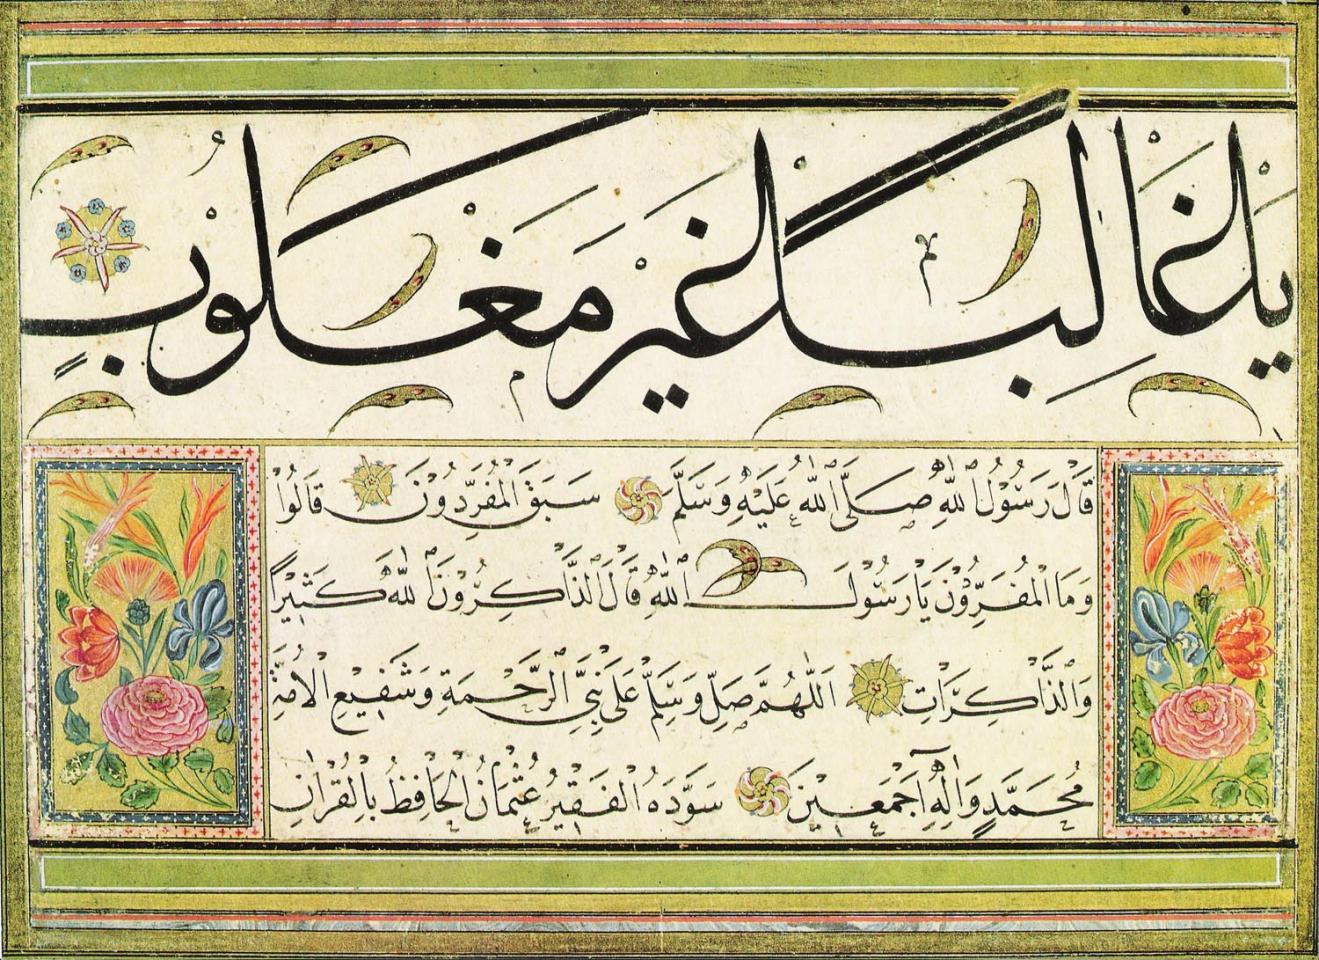 يَا غَالِبًا غَيْرَ مَغْلُوبٍ
قَالَ رَسُولُ اللهِ صَلَّى اللهُ عَلَيْهِ وَسَلَّمَ سَبَقَ الْمُفَرِّدُونَ قَالُوا
وَمَا الْمُفَرِّدُونَ يَا رَسُولَ اللهِ قَالَ الذَّاكِرُونَ اللهَ كَثِيرًا
وَالذَّاكِرَاتِ اَللّٰهُمَّ صَلِّ وَسَلِّمْ عَلَى نَبِيِّ الرَّحْمَةِ وَشَفِيعِ الْأُمَّةِ
مُحَمَّدٍ وَاٰلِهِ أَجْمَعِينَ سَوَّدَهُ الْفَقِيرُ عُثْمَانُ الْحَافِظُ بِالْقُرْاٰنِ